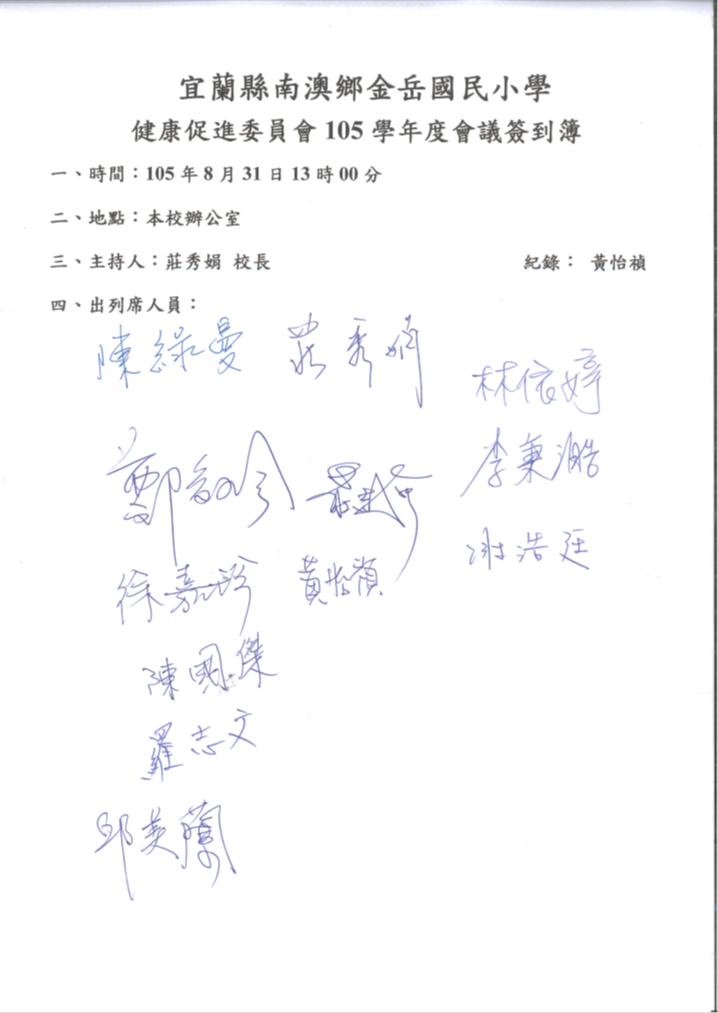 宜蘭縣南澳鄉金岳國民小學
健康促進委員會 105 學年度會議簽到簿
一、時間：105 年 8 月 31 日 13 時 00 分
二、地點：本校辦公室
三、主持人：莊秀娟 校長 紀錄： 黃怡禎
四、出列席人員：
陳綠曼 莊秀娟
林依婷
鄭
李秉澔
謝浩廷
徐嘉珍 黃怡禎
陳國傑
羅志文
邱美蘭